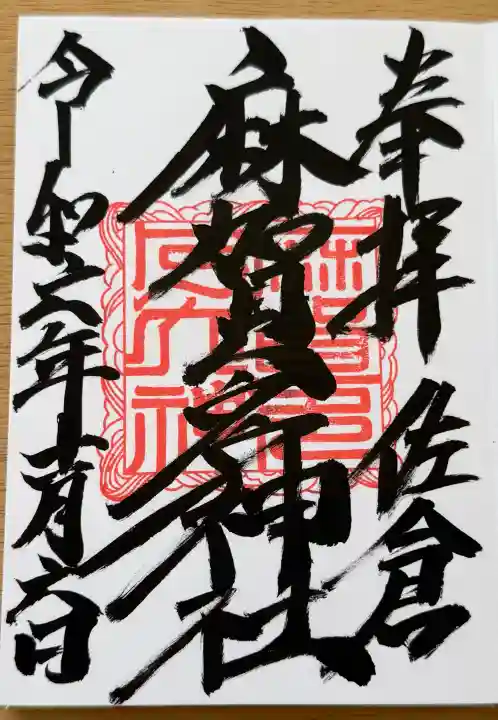 奉拝 佐倉
麻賀多神社
令和六年十月六日